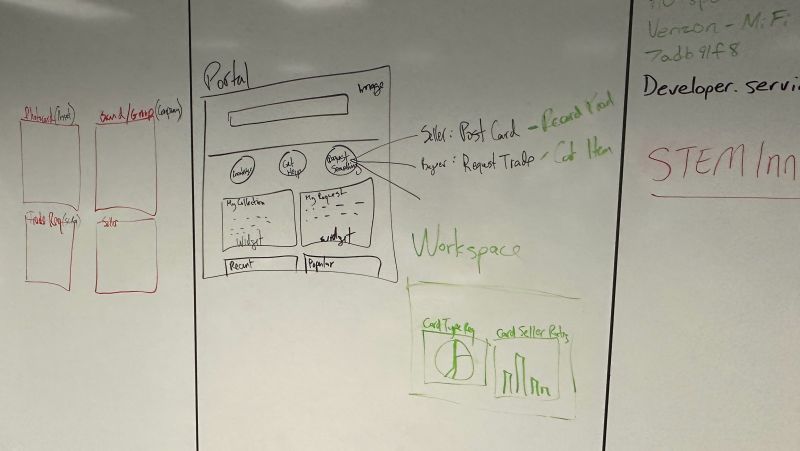 Photocard (Asset)
Brand/Group (Company)
Trade Req
Seller
Portal
Image
Get Help
Request Something
My Collection
Widget
My Request
Widget
Recent
Popular
Seller: Post Card - Record Prod
Buyer: Request Trade - Cat Item
Workspace
Card Type Req
Card Seller Ratng
Verizon - MiFi
7adb91f8
Developer.servi
STEM/nn